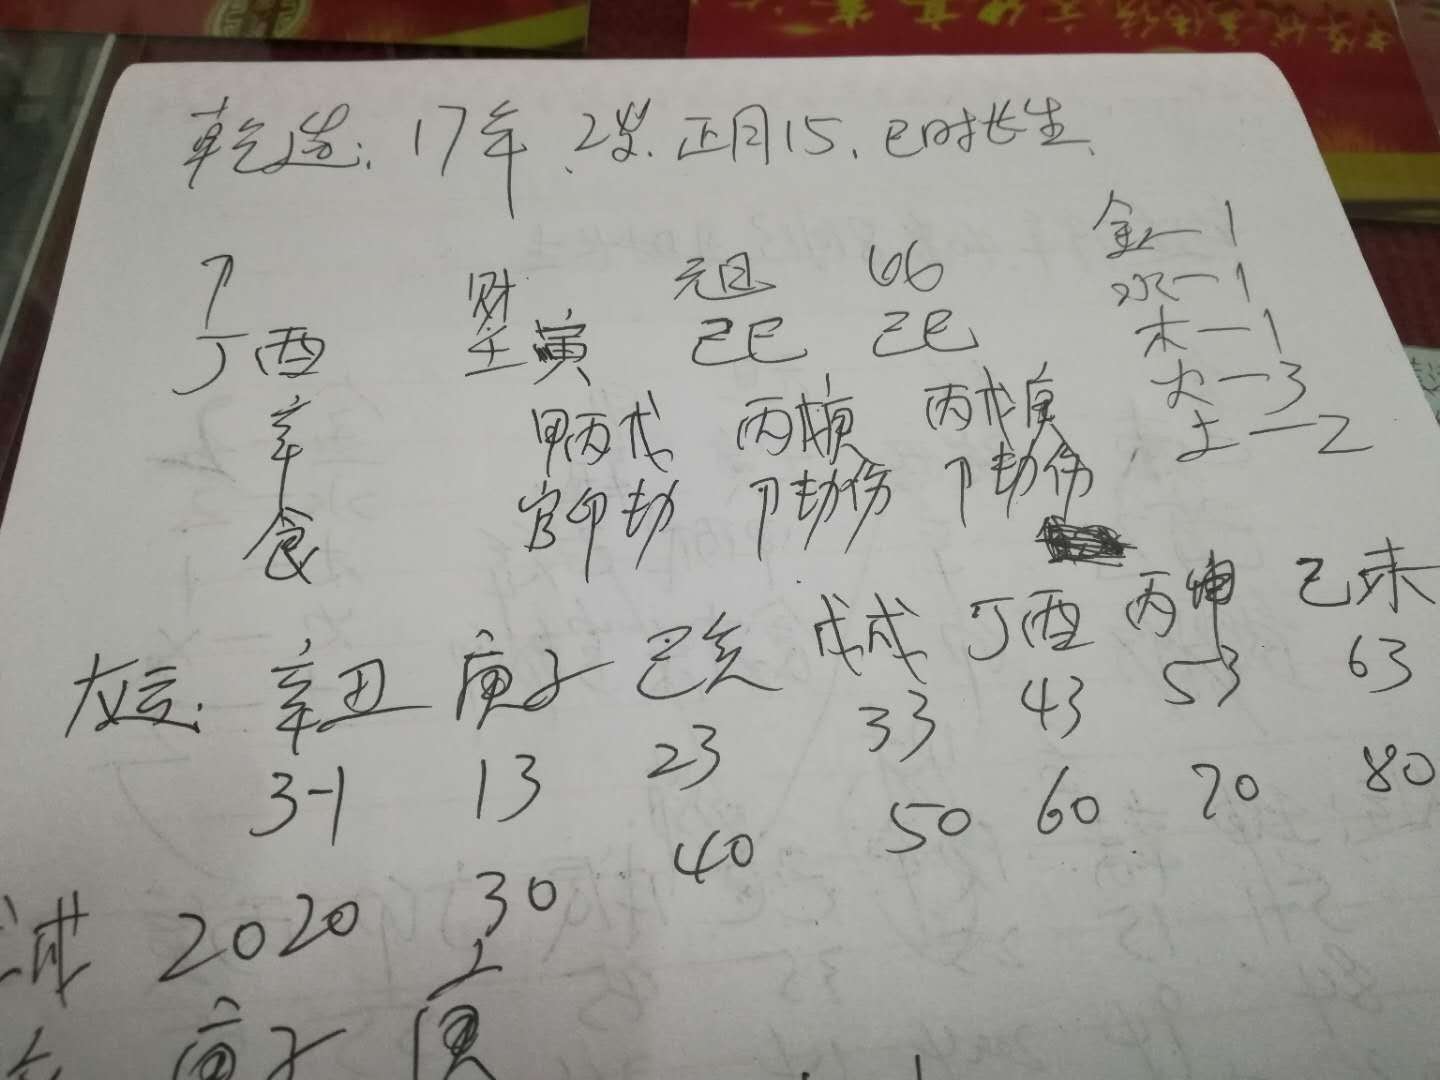 乾造：17年、2岁.正月15、巳时长生、
卩 财 元日 比
丁酉 壬寅 己巳 己巳
金—1
水—1
木—1
火—3
土—2
辛 甲丙戊 丙戊庚 丙戊庚
食 官印劫 卩劫伤 卩劫伤
大运：辛丑 庚子 己亥 戊戌 丁酉 丙申 乙未
3-1 13 23 33 43 53 63
2020 30 40 50 60 70 80
庚子